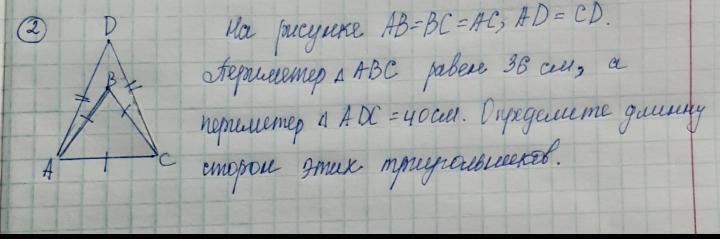 2
D
B
A
C
На рисунке AB=BC=AC; AD=CD.
Периметр Δ ABC равен 36 см, а
периметр Δ ADC = 40см. Определите длинну
сторон этих триугольников.